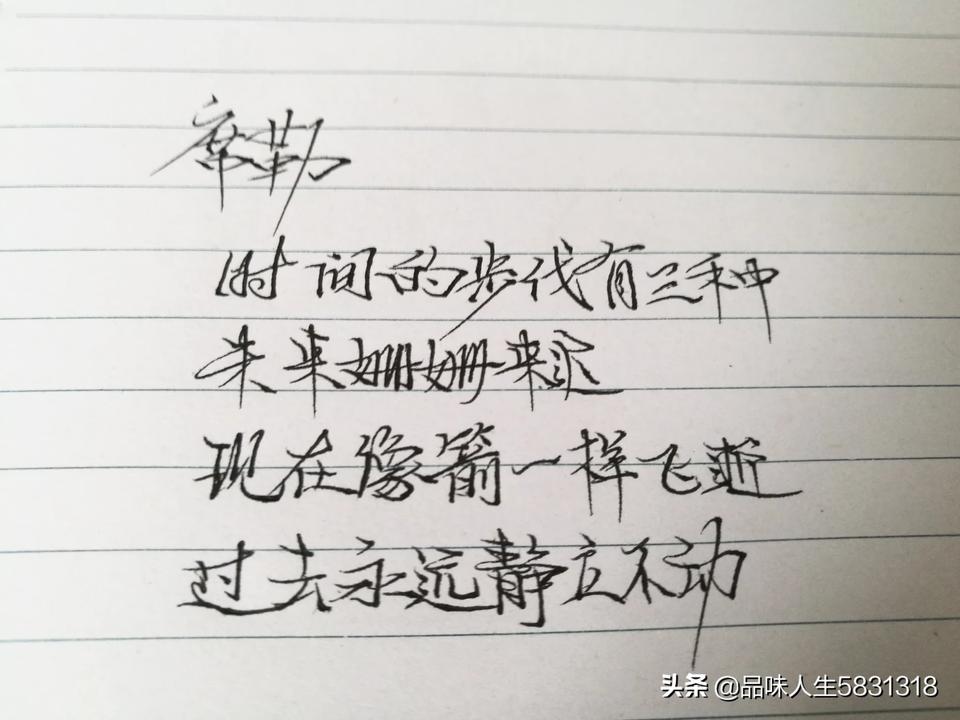 席勒
时间的步伐有三种
未来姗姗来迟
现在像箭一样飞逝
过去永远静立不动
头条 @品味人生5831318